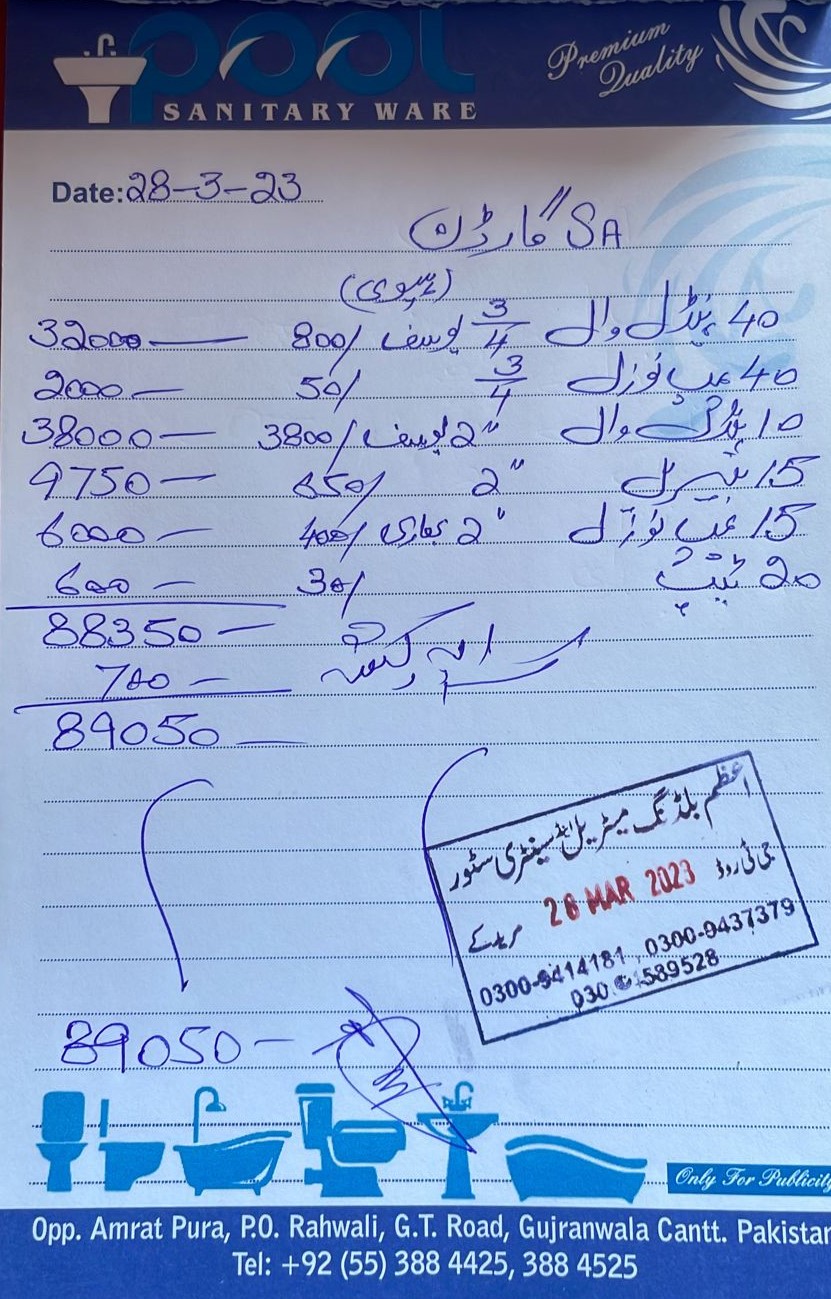 pool
SANITARY WARE
Premium
Quality
Date: 28-3-23
SA گارڈن
(ہیوی)
40 ہینڈل وال 3/4 یوسف 800/ 32000—
40 نوزل 3/4 50/ 2000—
10 وال 2" یوسف 3800/ 38000—
15 2" 650/ 9750—
15 نوزل 2" بھاری 400/ 6000—
20 ٹیپ 30/ 600—
88350—
کرایہ رکشہ 700—
89050—
اعظم بلڈنگ میٹریل اینڈ سینٹری سٹور
جی ٹی روڈ 28 MAR 2023 مریدکے
0300-9414181, 0300-9437379
589528
89050—
Only For Publicity
Opp. Amrat Pura, P.O. Rahwali, G.T. Road, Gujranwala Cantt. Pakistan
Tel: +92 (55) 388 4425, 388 4525